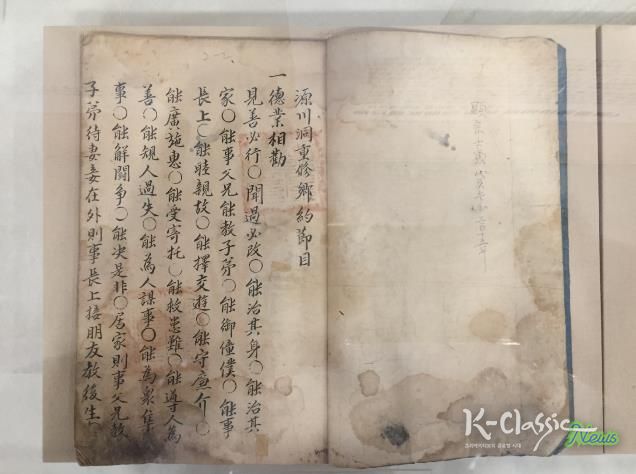 源川洞重修鄉約節目
一德業相勸
見善必行○聞過必改○能治其身○能治其
家○能事父兄能教子弟○能御僮僕○能事
長上○能睦親故○能擇交遊○能守廉介○
能廣施惠○能受寄托○能救患難○能導人為
善○能規人過失○能為人謀事○能為衆集
事○能解鬪争○能决是非○居家則事父兄教
子弟待妻妾在外則事長上接朋友教後生
K-Classic News